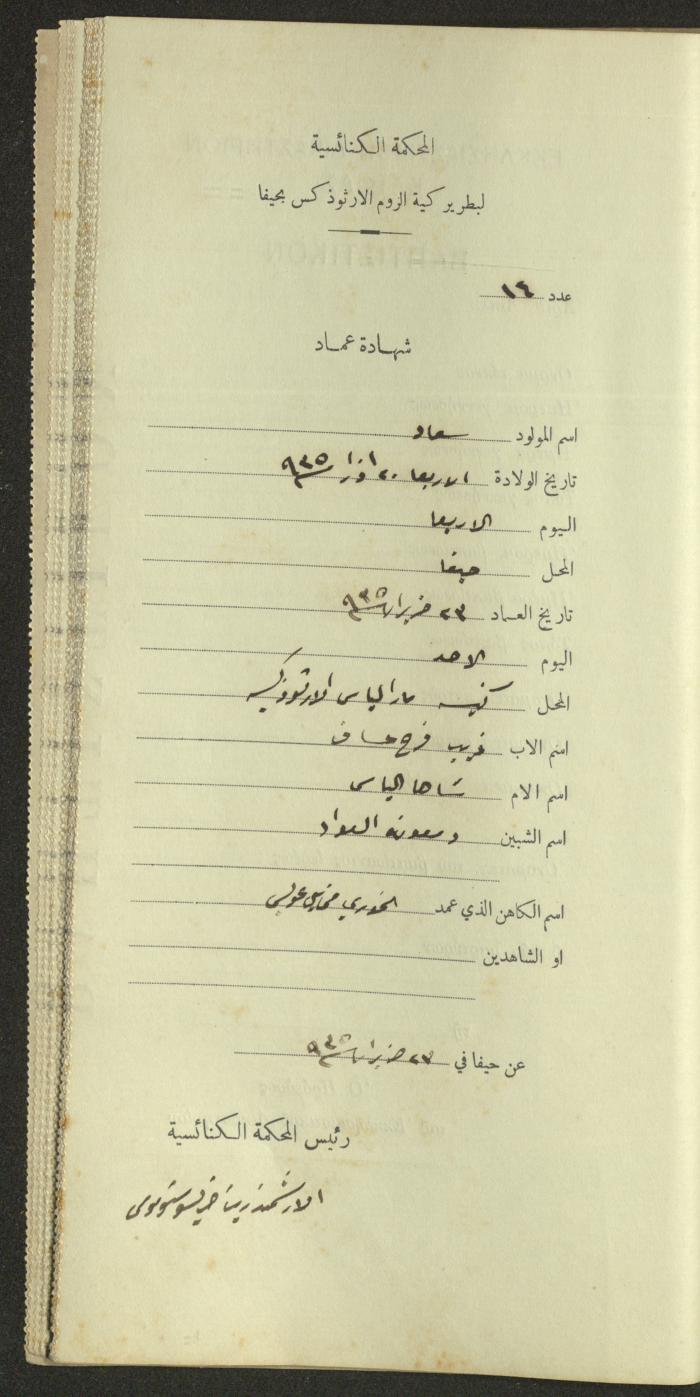 المحكمة الكنائسية
لبطريركية الروم الارثوذكس بحيفا
عدد ١٤
شهادة عماد
اسم المولود سعاد
تاريخ الولادة الاربعا ٢٠ اذار ٩٣٥
اليوم الاربعا
المحل حيفا
تاريخ العماد ٢٣ حزيران ٩٣٥
اليوم الاحد
المحل كنيسه مار الياس الارثوذكسيه
اسم الاب غريب فرح عساف
اسم الام الياس
اسم الشبين
اسم الكاهن الذي عمد الخوري
او الشاهدين
عن حيفا في ٢٣ حزيران ٩٣٥
رئيس المحكمة الكنائسية
الارشمندريت